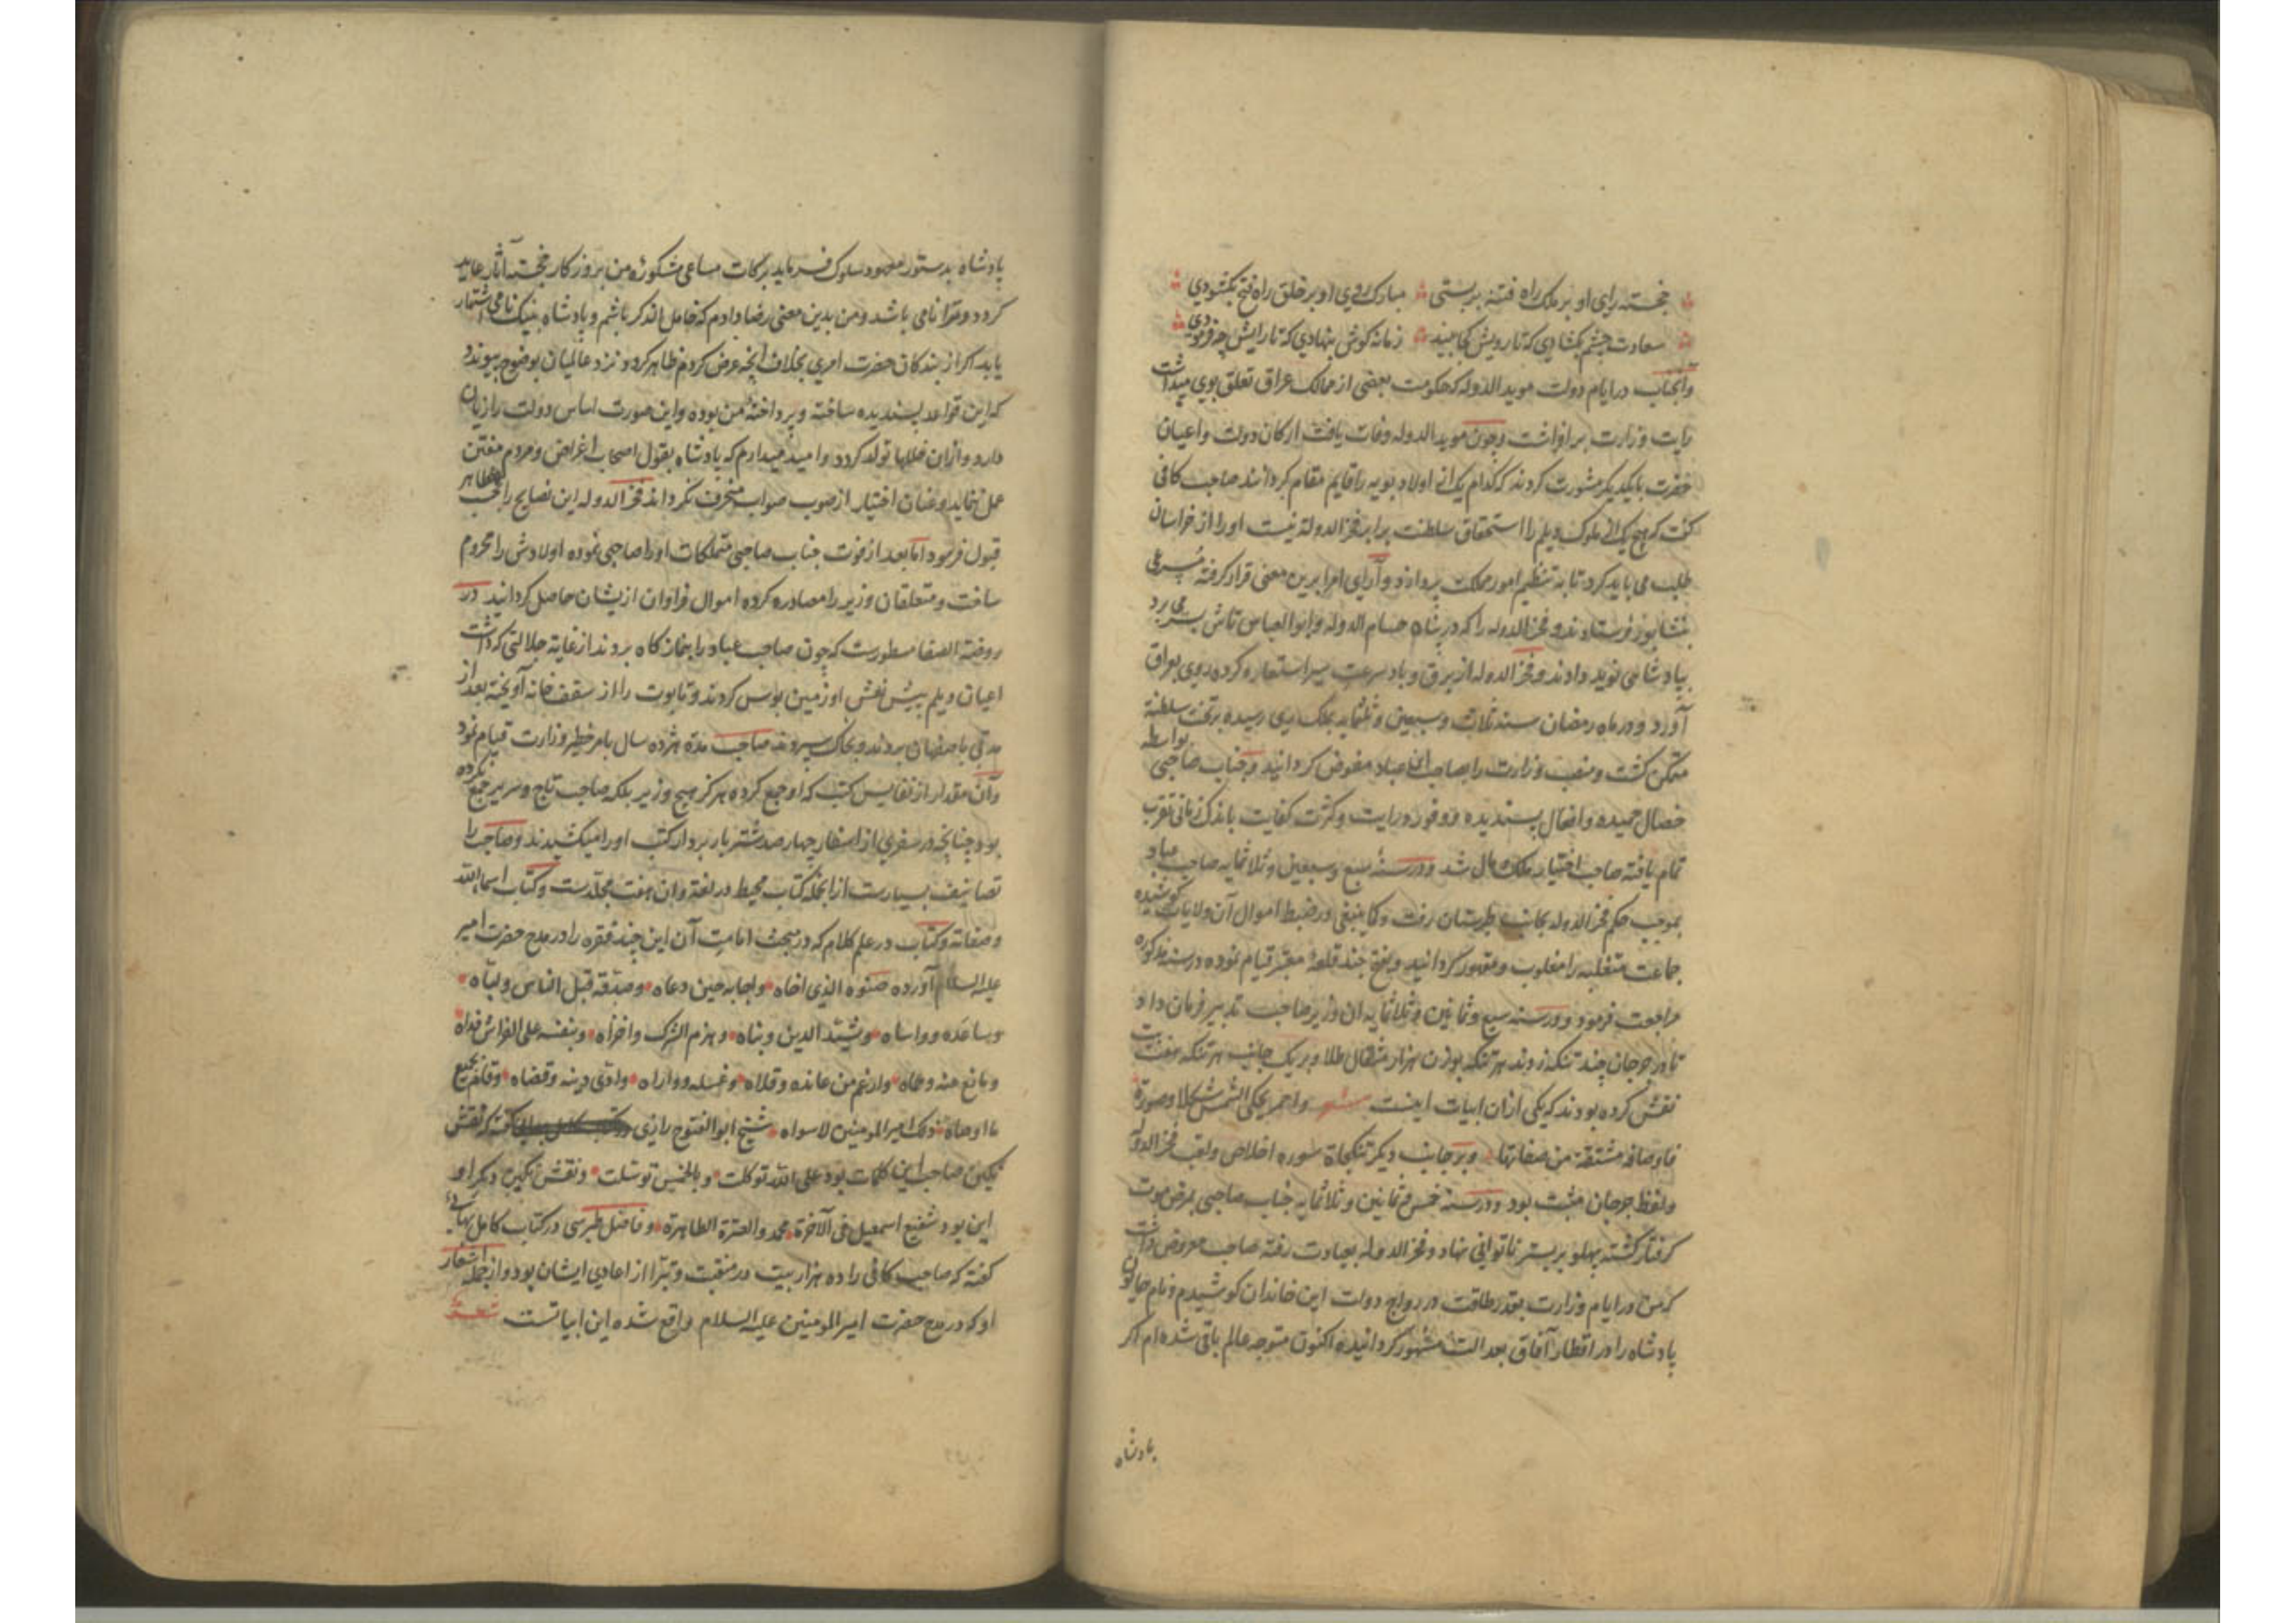 خجسته رای او بر ملک راه فتنه بر بستی مبارک روی او بر خلق راه فتح بکشودی
سعادت چشم بکشادی که تا رویش کجا بیند زمانه کوش بنهادی که تا رایش چه فرمودی
وآنجناب در ایام دولت موید الدوله که حکومت بعضی از ممالک عراق تعلق بوی میداشت
رایت وزارت بر افراشت وچون موید الدوله وفات یافت ارکان دولت واعیان
حضرت با یکدیکر مشورت کردند که کدام یک از اولاد بویه را قایم مقام کردانند صاحب کافی
کفت که هیچ یک از ملوک دیلم را استحقاق سلطنت برابر فخر الدوله نیست اورا از خراسان
طلب می باید کرد تا به تنظیم امور ممالک پردازد وآرای امرا برین معنی قرار کرفته مسرعی
بنشابور فرستادند وفخر الدوله را که در پناه حسام الدوله ابو العباس تاش بسر می برد
بپادشاهی نوید دادند وفخر الدوله از برق وباد سرعت سیر استعاره کرده روی بعراق
آورد ودر ماه رمضان سنه ثلاث وسبعین وثلثمایه بملک ری رسیده بر تخت سلطنة
متمکن کشت ومنصب وزارت را بصاحب ابن عباد مفوض کردانید وجناب صاحبی بواسطه
خصال حمیده وافعال پسندیده ووفور درایت وکثرت کفایت باندک زمانی تقرب
تمام یافته صاحب اختیار ملک ومال شد ودر سنهٔ سبع وسبعین وثلاثمایه صاحب عباد
بموجب حکم فخر الدوله بجانب طبرستان رفت وکما ینبغی در ضبط اموال آن ولایات کوشیده
جماعت متغلبه را مغلوب ومقهور کردانید وبفتح چند قلعهٔ معتبر قیام نموده در سنه مذکوره
مراجعت فرمود ودر سنه سبع وثمانین وثلاثمایه ان وزیر صاحب تدبیر فرمان داد
تا در جرجان چند تنکه زدند هر تنکه بوزن هزار مثقال طلا وبر یک جانب هر تنکه هفت بیت
نقش کرده بودند که یکی ازان ابیات اینست شعر واحمر یحکی الشمس شکلا وصورة
فاوصافه مشتقة من صفاتها وبر جانب دیکر تنکجاة سوره اخلاص ولقب فخر الدوله
ولفظ جرجان مثبت بود ودر سنه خمس وثمانین وثلاثمایه جناب صاحبی بمرض موت
کرفتار کشته پهلو بر بستر ناتوانی نهاد وفخر الدوله بعیادت رفته صاحب معروض داشت
که من در ایام وزارت بقدر طاقت در رواج دولت این خاندان کوشیدم ونام همایون
پادشاه را در اقطار آفاق بعدالت مشهور کردانیده اکنون متوجه عالم باقی شده ام اکر
پادشاه
پادشاه بدستور معهود سلوک فرماید برکات مساعی مشکورهٔ من بروزکار خجسته آثار عاید
کردد ومرا نامی باشد ومن بدین معنی رضا دادم که خامل الذکر باشم وپادشاه بنیک نامی اشتهار
یابد اکر از بندکان حضرت امری بخلاف آنچه عرض کردم ظاهر کردد نزد عالمیان بوضوح پیوندد
که این قواعد پسندیده ساخته وپرداختهٔ من بوده واین صورت اساس دولت را زیان
دارد وازان خللها تولد کردد وامید میدارم که پادشاه بقول اصحاب اغراض ومردم مفتن
عمل ننماید وعنان اختیار از صوب صواب منحرف نکرداند فخر الدوله این نصایح را بحسب ظاهر
قبول فرمود اما بعد از فوت جناب صاحبی متملکات اورا صاحبی نموده اولادش را محروم
ساخت ومتعلقان وزیر را مصادره کرده اموال فراوان ازیشان حاصل کردانید در
روضة الصفا مسطورست که چون صاحب عباد را بنماز کاه بردند از غایة جلالتی که داشت
اعیان دیلم پیش نعش او زمین بوس کردند وتابوت را از سقف خانه آویخته بعد از
مدتی باصفهان بردند وبخاک سپردند صاحب مدة هژده سال بامر خطیر وزارت قیام نمود
وآن مقدار از نفایس کتب که او جمع کرده هرکز هیچ وزیر بلکه صاحب تاج وسریر جمع نکرده
بود چنانچه در سفری از اسفار چهار صد شتر بار بردار کتب اورا میکشیدند وصاحب را
تصانیف بسیارست ازانجمله کتاب محیط در لغة وان هفت مجلدست وکتاب اسماء الله
وصفاته وکتاب در علم کلام که در مبحث امامت آن این چند فقره را در مدح حضرت امیر
علیه السلام آورده صنوه الذی اخاه واجابه حین دعاه وصدقه قبل الناس ولباه
وساعده وواساه وشید الدین وبناه وهزم الشرک واخزاه وبنفسه علی الفراش فداه
ومانع عنه وحماه وارغم من عانده وقلاه وغسله وواراه وادی دینه وقضاه وقام بجمیع
ما اوصاه ذلک امیر المومنین لا سواه شیخ ابو الفتوح رازی کفته که نقش
نکین صاحب این کلمات بود علی الله توکلت وبالخمس توسلت ونقش نکین دیکر او
این بود شفیع اسمعیل فی الآخرة محمد والعترة الطاهرة وفاضل طبرسی در کتاب کامل بهائی
کفته که صاحب کافی را ده هزار بیت در منقبت وتبرا از اعادی ایشان بود واز جمله اشعار
او که در مدح حضرت امیر المومنین علیه السلام واقع شده این ابیاتست شعر